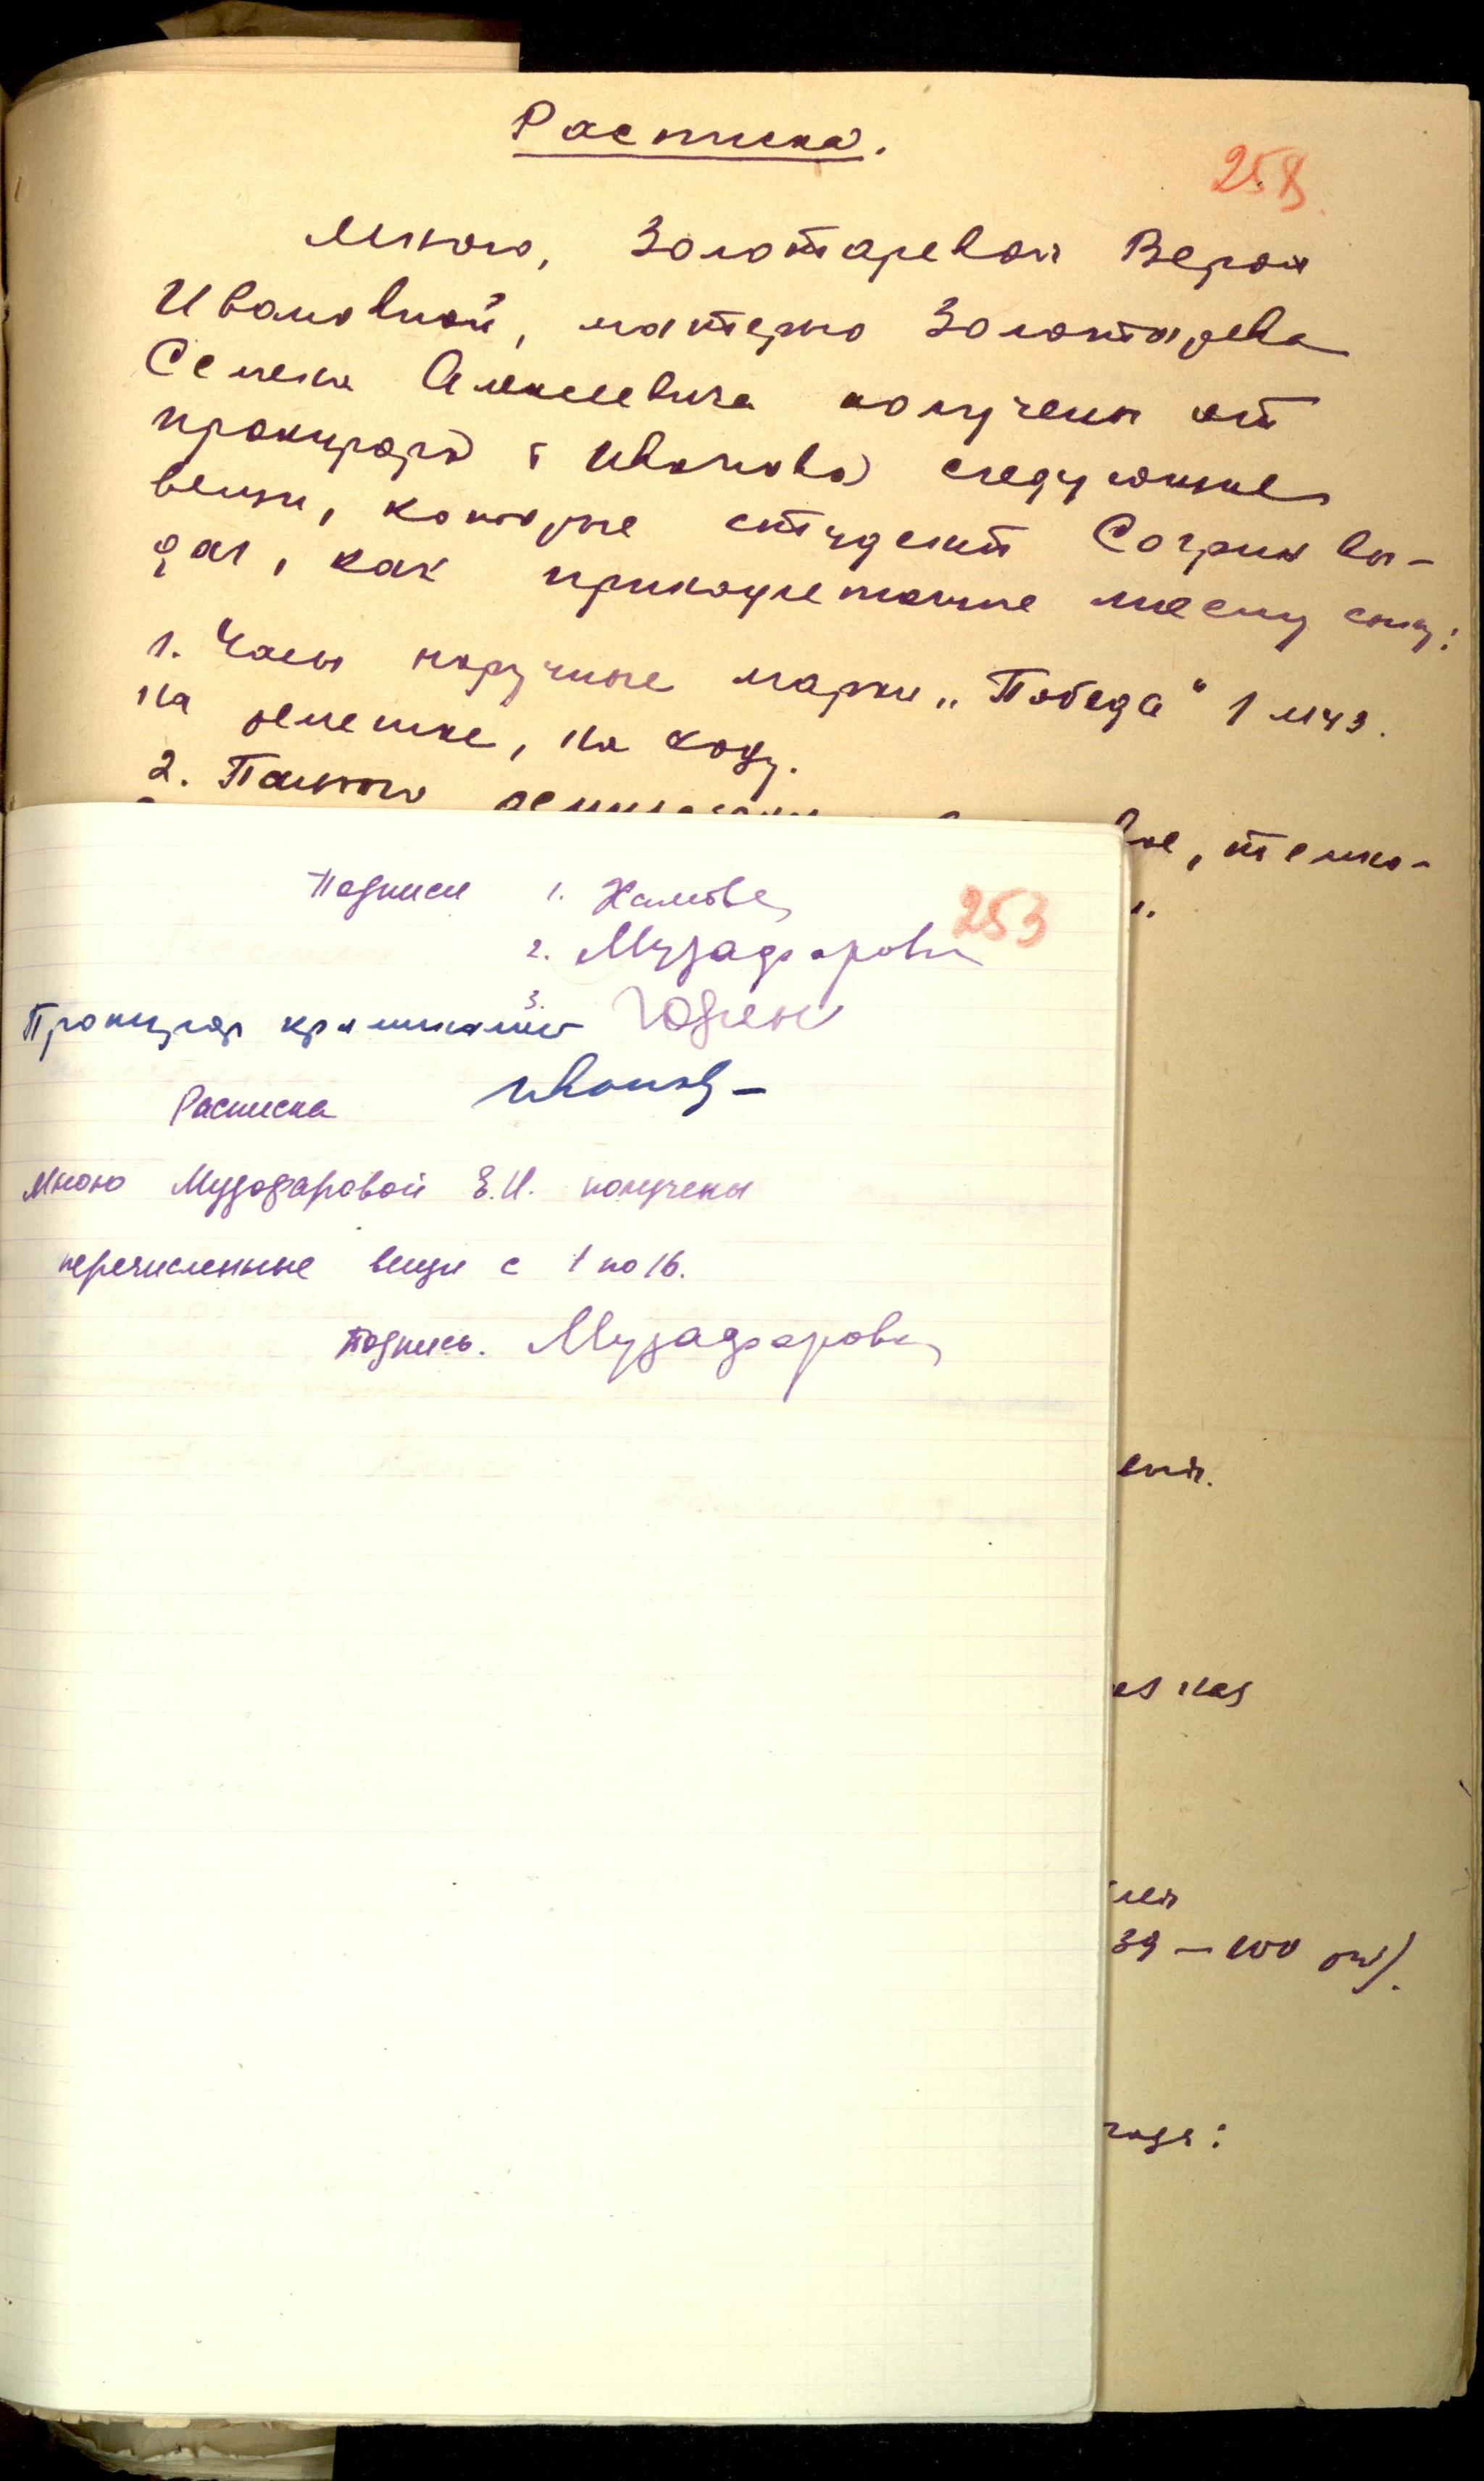 Расписка.
258
Мною, Золотаревой Верой
Ивановной, матерью Золотарева
Семена Алексеевича получены от
прокурора т Иванова следующие
вещи, которые студент Согрин вы-
дал, как принадлежащие моему сыну:
1. Часы наручные марки „Победа" 1 мчз.
на ремешке, на ходу.
2. Пальто
вое, темно-
253
Подписи 1.
2. Музафарова
3.
Прокурор криминалист
Расписка Иванов
Мною Музафаровой Е.И. получены
перечисленные вещи с 1 по 16.
Подпись. Музафарова
39 – 100
года: